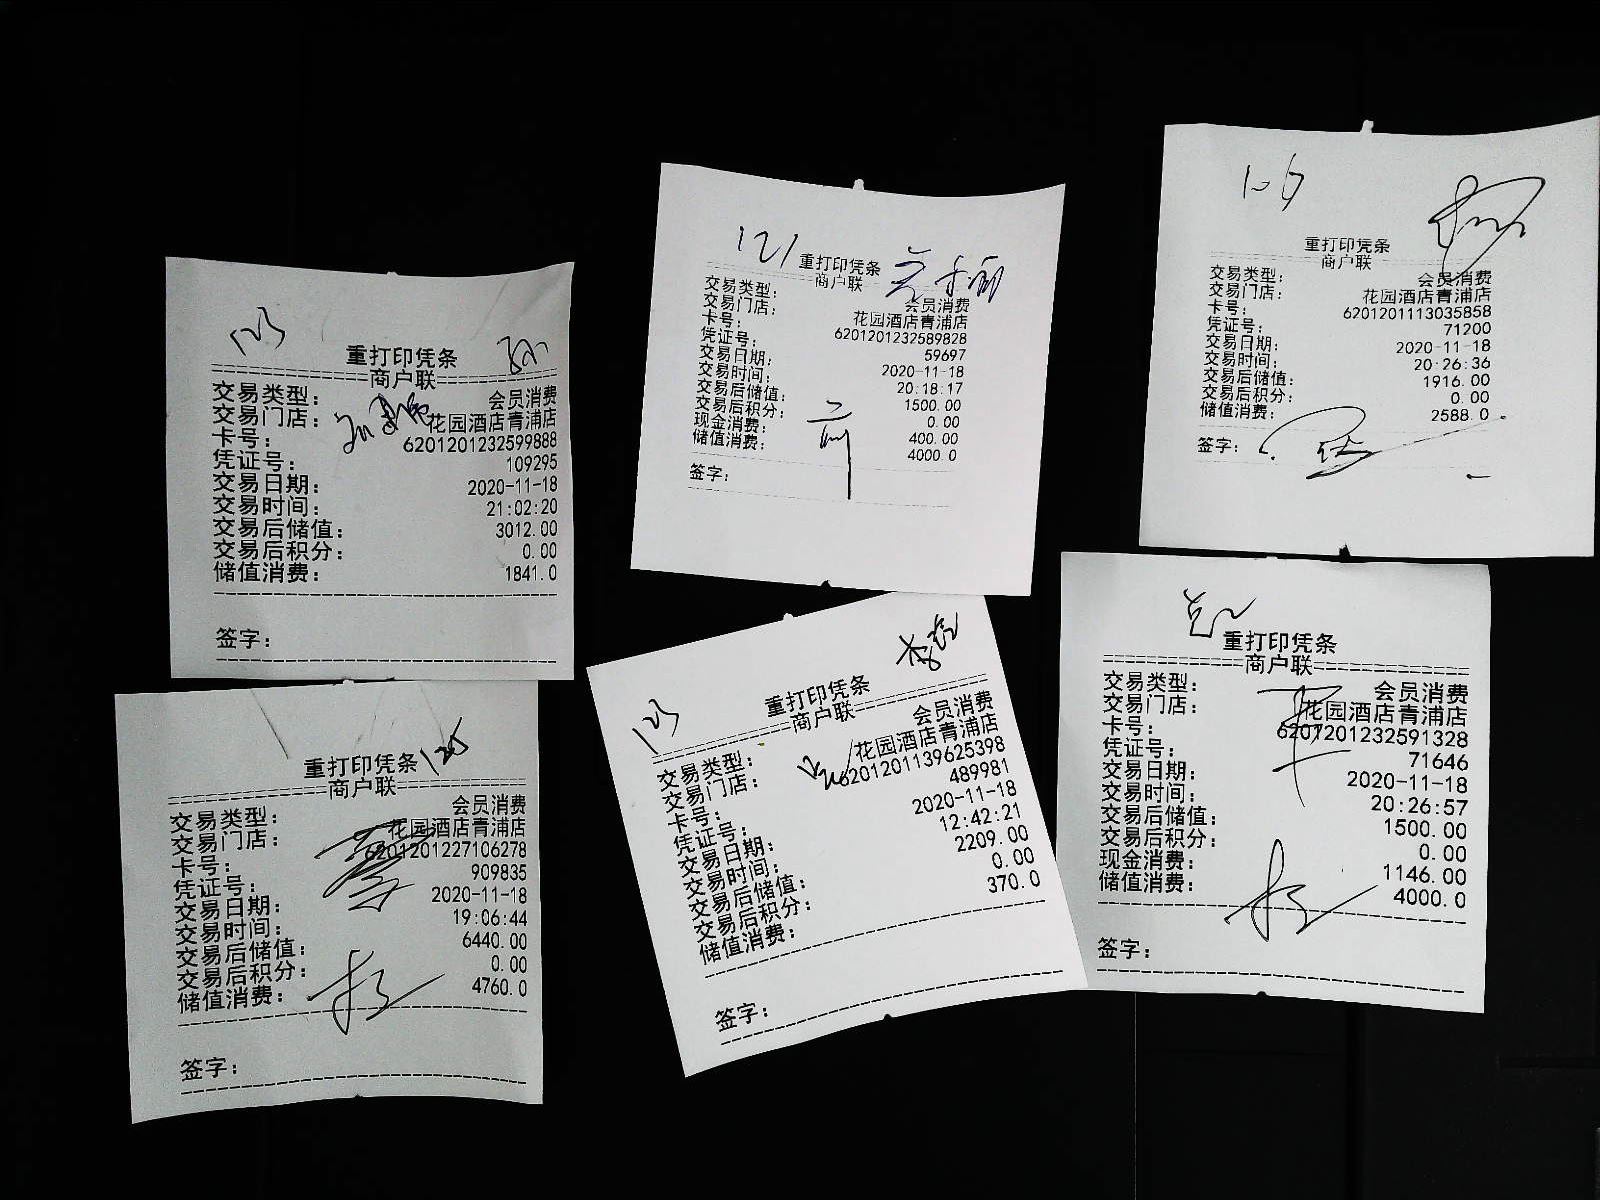 123
重打印凭条
商户联
交易类型: 会员消费
交易门店: 花园酒店青浦店
卡号: 6201201232599888
凭证号: 109295
交易日期: 2020-11-18
交易时间: 21:02:20
交易后储值: 3012.00
交易后积分: 0.00
储值消费: 1841.0
签字:
121
重打印凭条
商户联
交易类型: 会员消费
交易门店: 花园酒店青浦店
卡号: 6201201232589828
凭证号: 59697
交易日期: 2020-11-18
交易时间: 20:18:17
交易后储值: 1500.00
交易后积分: 0.00
现金消费: 400.00
储值消费: 4000.0
签字:
106
重打印凭条
商户联
交易类型: 会员消费
交易门店: 花园酒店青浦店
卡号: 6201201113035858
凭证号: 71200
交易日期: 2020-11-18
交易时间: 20:26:36
交易后储值: 1916.00
交易后积分: 0.00
储值消费: 2588.0
签字:
125
重打印凭条
商户联
交易类型: 会员消费
交易门店: 花园酒店青浦店
卡号: 6201201227106278
凭证号: 909835
交易日期: 2020-11-18
交易时间: 19:06:44
交易后储值: 6440.00
交易后积分: 0.00
储值消费: 4760.0
签字:
123
重打印凭条
商户联
交易类型: 会员消费
交易门店: 花园酒店青浦店
卡号: 6201201139625398
凭证号: 489981
交易日期: 2020-11-18
交易时间: 12:42:21
交易后储值: 2209.00
交易后积分: 0.00
储值消费: 370.0
签字:
重打印凭条
商户联
交易类型: 会员消费
交易门店: 花园酒店青浦店
卡号: 6201201232591328
凭证号: 71646
交易日期: 2020-11-18
交易时间: 20:26:57
交易后储值: 1500.00
交易后积分: 0.00
现金消费: 1146.00
储值消费: 4000.0
签字: